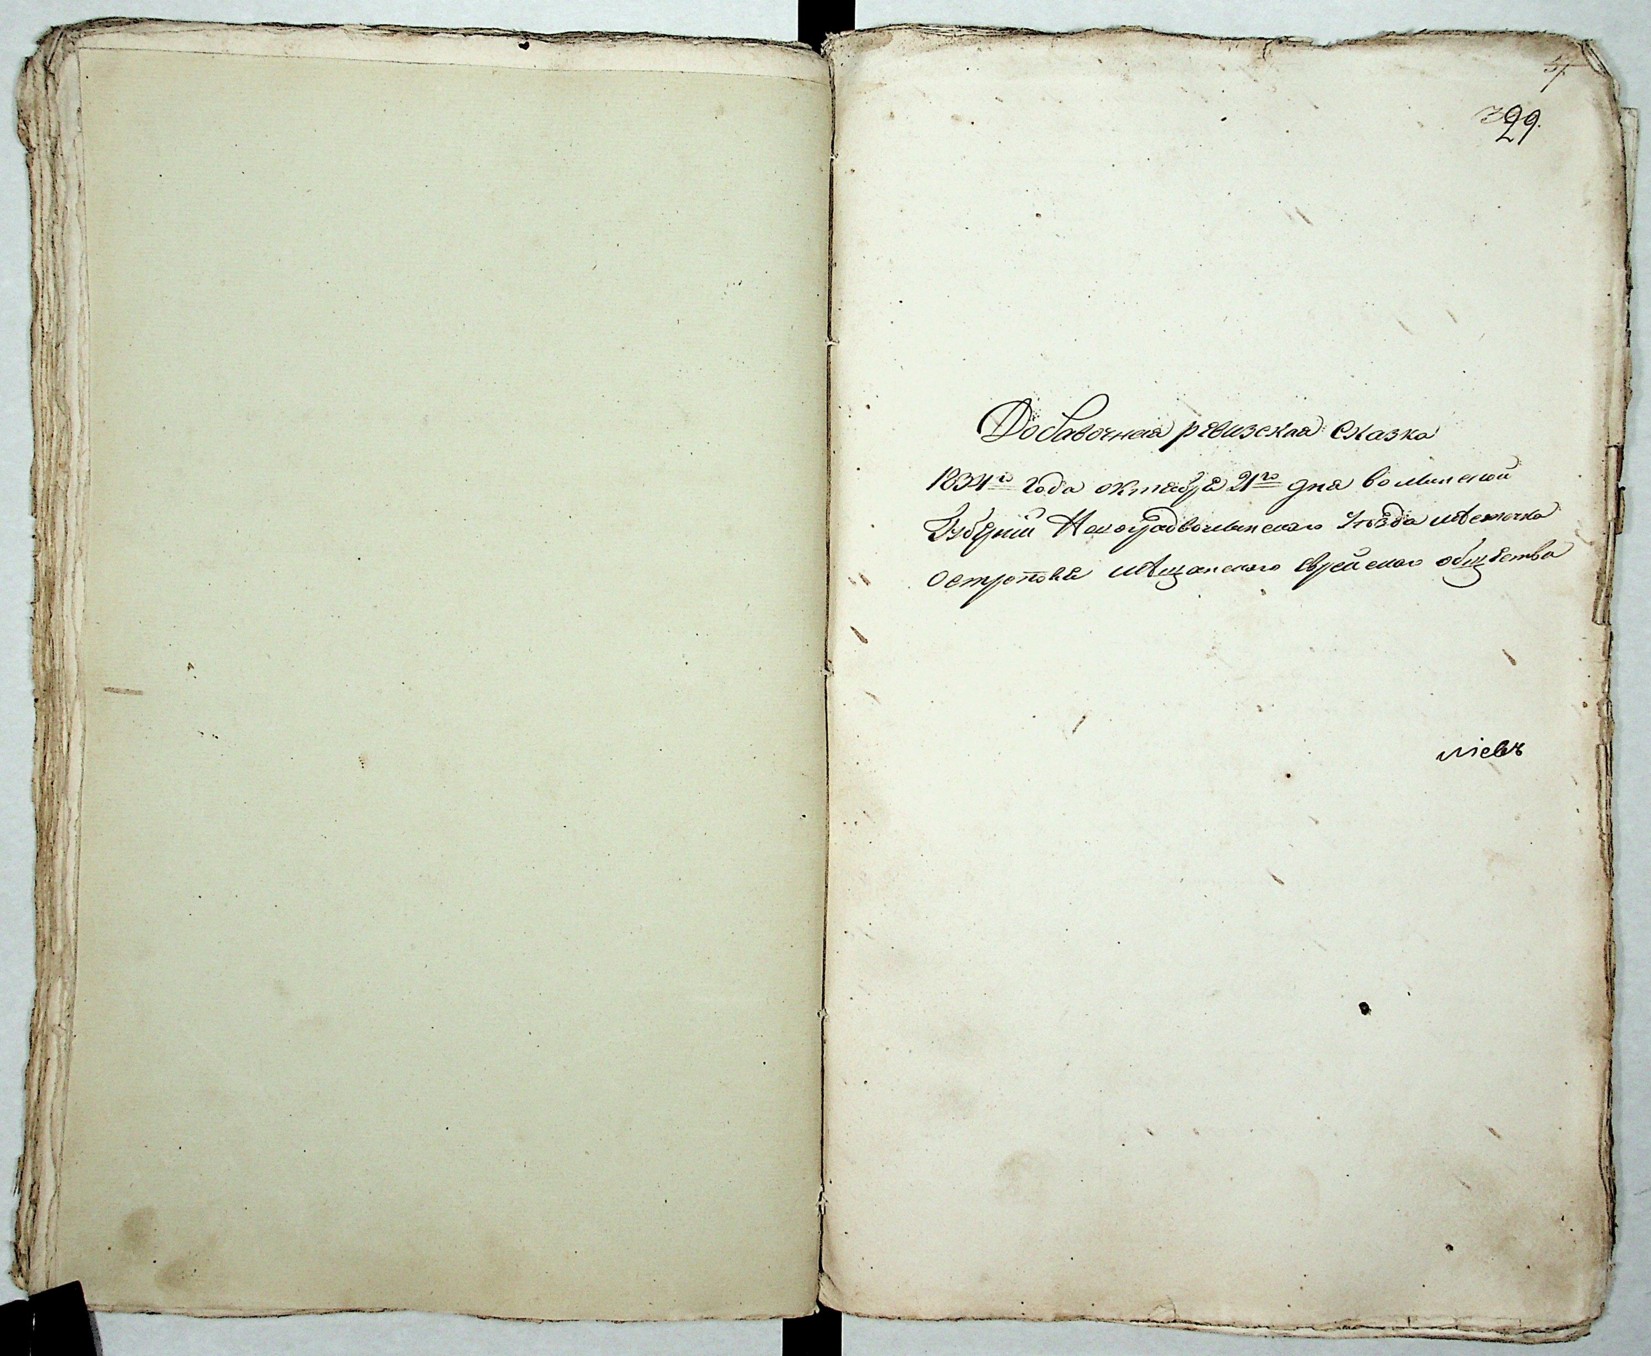 329.
Добавочная ревизская сказка
1834го года октября 21го дня волынской
Губернiи Новоградволынского уѣзда мѣстечка
Острополя мѣщанского еврейского общества
лiевъ